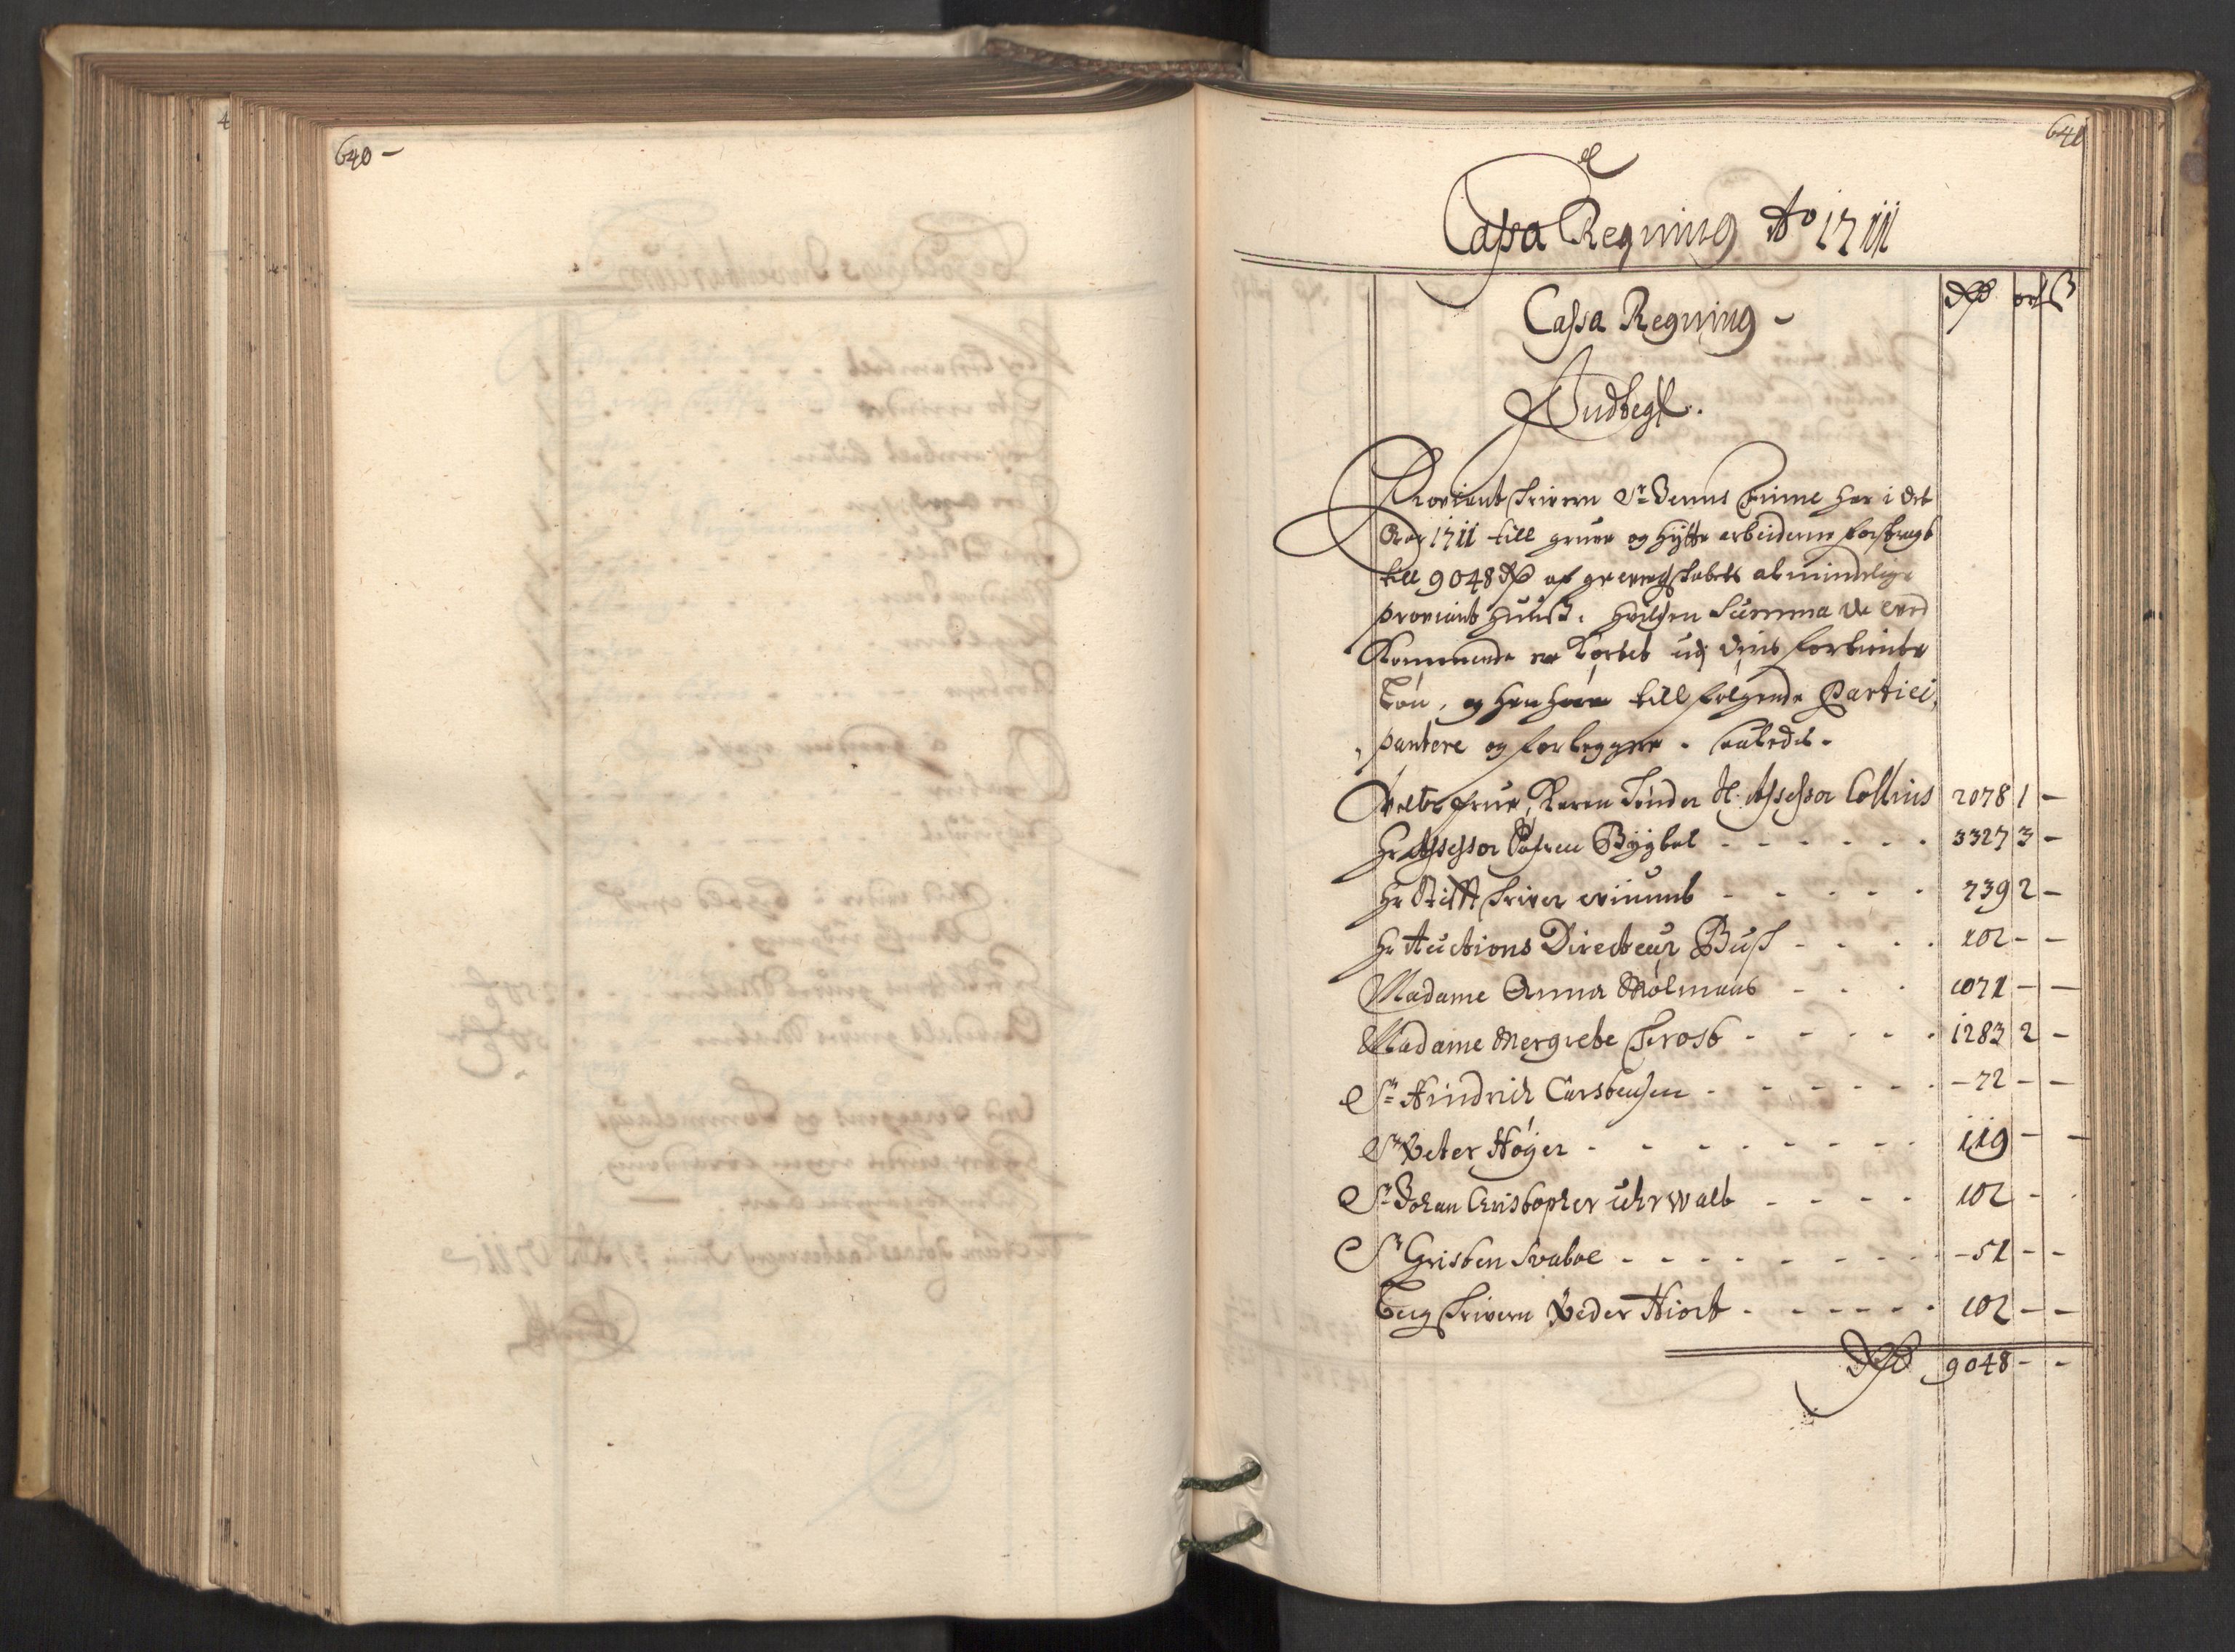 640 -
641
Cassa Regning Ao 1711
Cassa Regning -
Rdr ort ß
Indtegt.
Proviant skriveren Sr Bernt Finne har i det
Aar 1711 till gruve og hytte arbeiderne forstragt
till 9048 Rdr af gr Værchskabets almindelige
proviant huuss. hvilchen Summa de ved
Kommende er kortet udj deris fortiente
Løn, og hen hører till følgende Partici,
pantere og forleggere. saaledes.
Velb: frue, Karen Tønder Sl: Assessor Collins 2078 1 -
Hr Assessor Bygbal - - - - - - 3327 3 -
Hr Stift skriver - - - - - 739 2 -
Hr Auctions Directeur Buss - - - - 102 - -
Madame Anna Mølmans - - - 1071 - -
Madame Mergrete Frost - - - - - 1283 2 -
Sr Hindrich Carstensen - - - - - - - 72 - -
Sr Peter Høyer - - - - - - - - 119 - -
Sr Johan Christopher uhrwalt - - - - 102 - -
Sr Christen Svaboe - - - - - - - - 51 - -
berg skriveren Peder Hiort - - - - - - 102 - -
Rdr 9048 - -